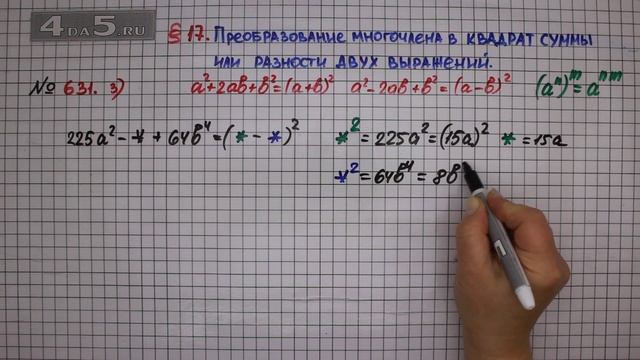 4DA5.RU
§ 17. Преобразование многочлена в квадрат суммы
или разности двух выражений.
№ 631. 3) a²+2ab+b²=(a+b)² a²-2ab+b²=(a-b)² (aⁿ)ᵐ=aⁿᵐ
225a² - * + 64b⁴ = (* - *)² *² = 225a² = (15a)² * = 15a
*² = 64b⁴ = 8b